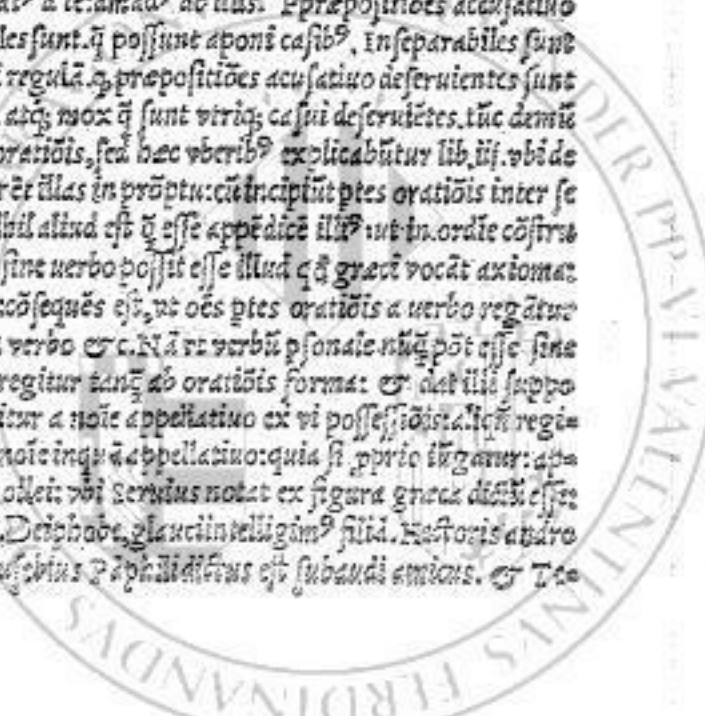 a te: amad⁹ ab illis. Ppræpositiões accusatiuo
les sunt. q̃ possunt aponi casib⁹. Inseparabiles sunt
regulã. q. præpositiões acusatiuo deseruientes sunt
atq; mox q̃ sunt vtriq; casui deseruiẽtes. tũc demũ
oratiõis, sed hæc vberib⁹ explicabũtur lib. iij. vbi de
rẽt illas in prõptu: cũ incipiũt ptes oratiõis inter se
bil aliud est q̃ esse appẽdicẽ illi⁹: ut in ordĩe cõstru
sine uerbo possit esse illud qđ græci vocãt axioma:
cõsequẽs est, vt oẽs ptes oratiõis a uerbo regãtur
verbo &c. Nã vt verbũ psonale nũq̃ põt esse sine
regitur tanq̃ ab oratiõis forma: & dat illi suppo
itur a noĩe appellatiuo ex vi possessiõis: aliqñ regi=
noĩe inquã appellatiuo: quia si pprio iũgatur: ap=
ollei: vbi Seruius notat ex figura græca dictũ esse:
Deiphobe, glauci intelligim⁹ filia. Hectoris andro
usebius Pãphili dictus est subaudi amicus. & Te=
DER PP VALENTINVS FERDINANDVS